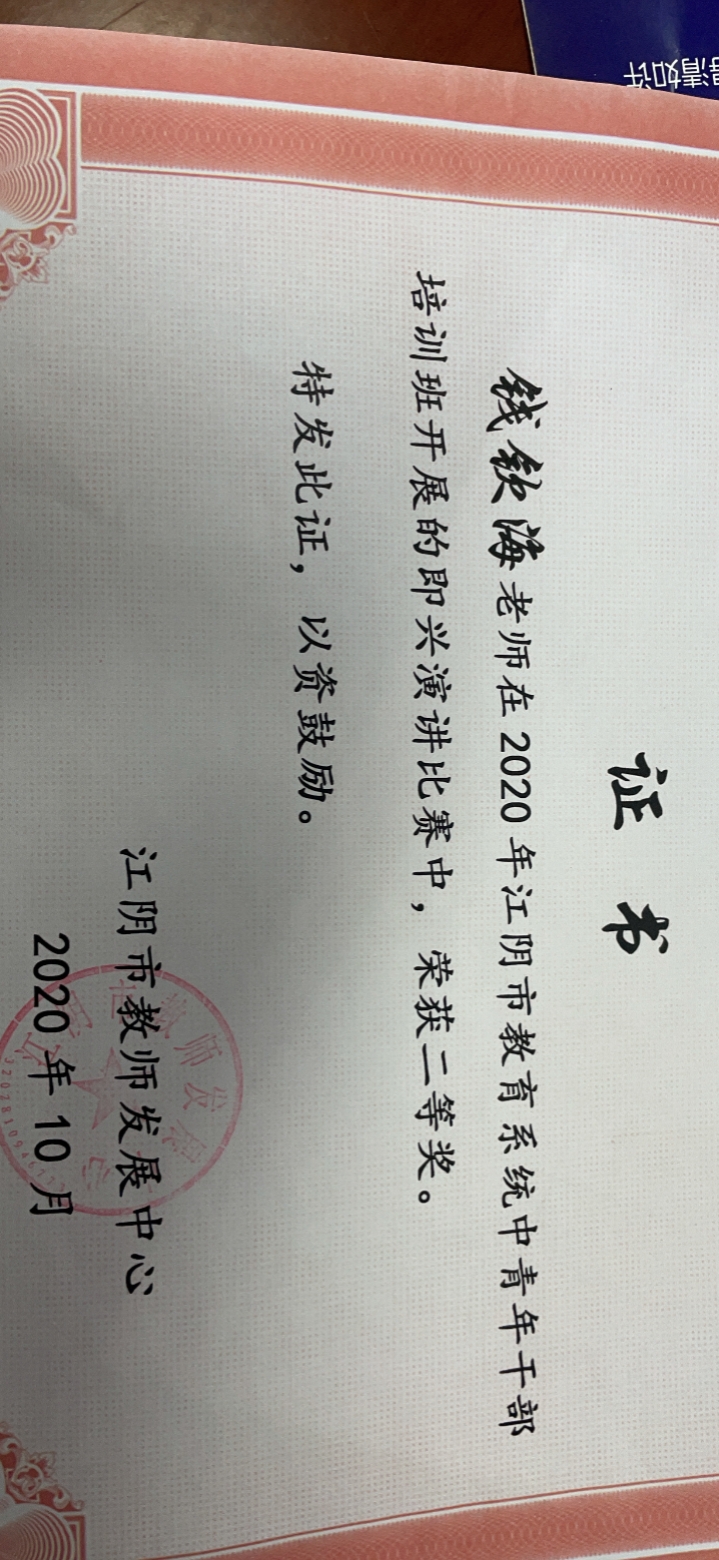 证书
钱钦海老师在2020年江阴市教育系统中青年干部
培训班开展的即兴演讲比赛中，荣获二等奖。
特发此证，以资鼓励。
江阴市教师发展中心
2020年10月
清如许